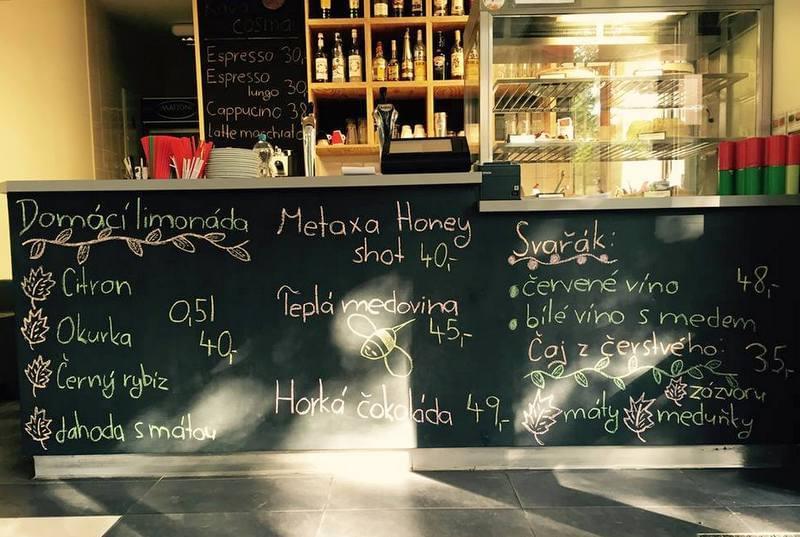 Káva
cosma
Espresso 30,
Espresso
lungo 30,
Cappucino 38
Latte macchiato
MATTONI
Domácí limonáda
Citron
0,5l
Okurka
40,-
Černý rybíz
Jahoda s mátou
Metaxa Honey
shot 40,-
Teplá medovina
45,-
Horká čokoláda 49,-
Svařák:
červené víno 48,-
bílé víno s medem
Čaj z čerstvého: 35,-
zázvoru
máty meduňky